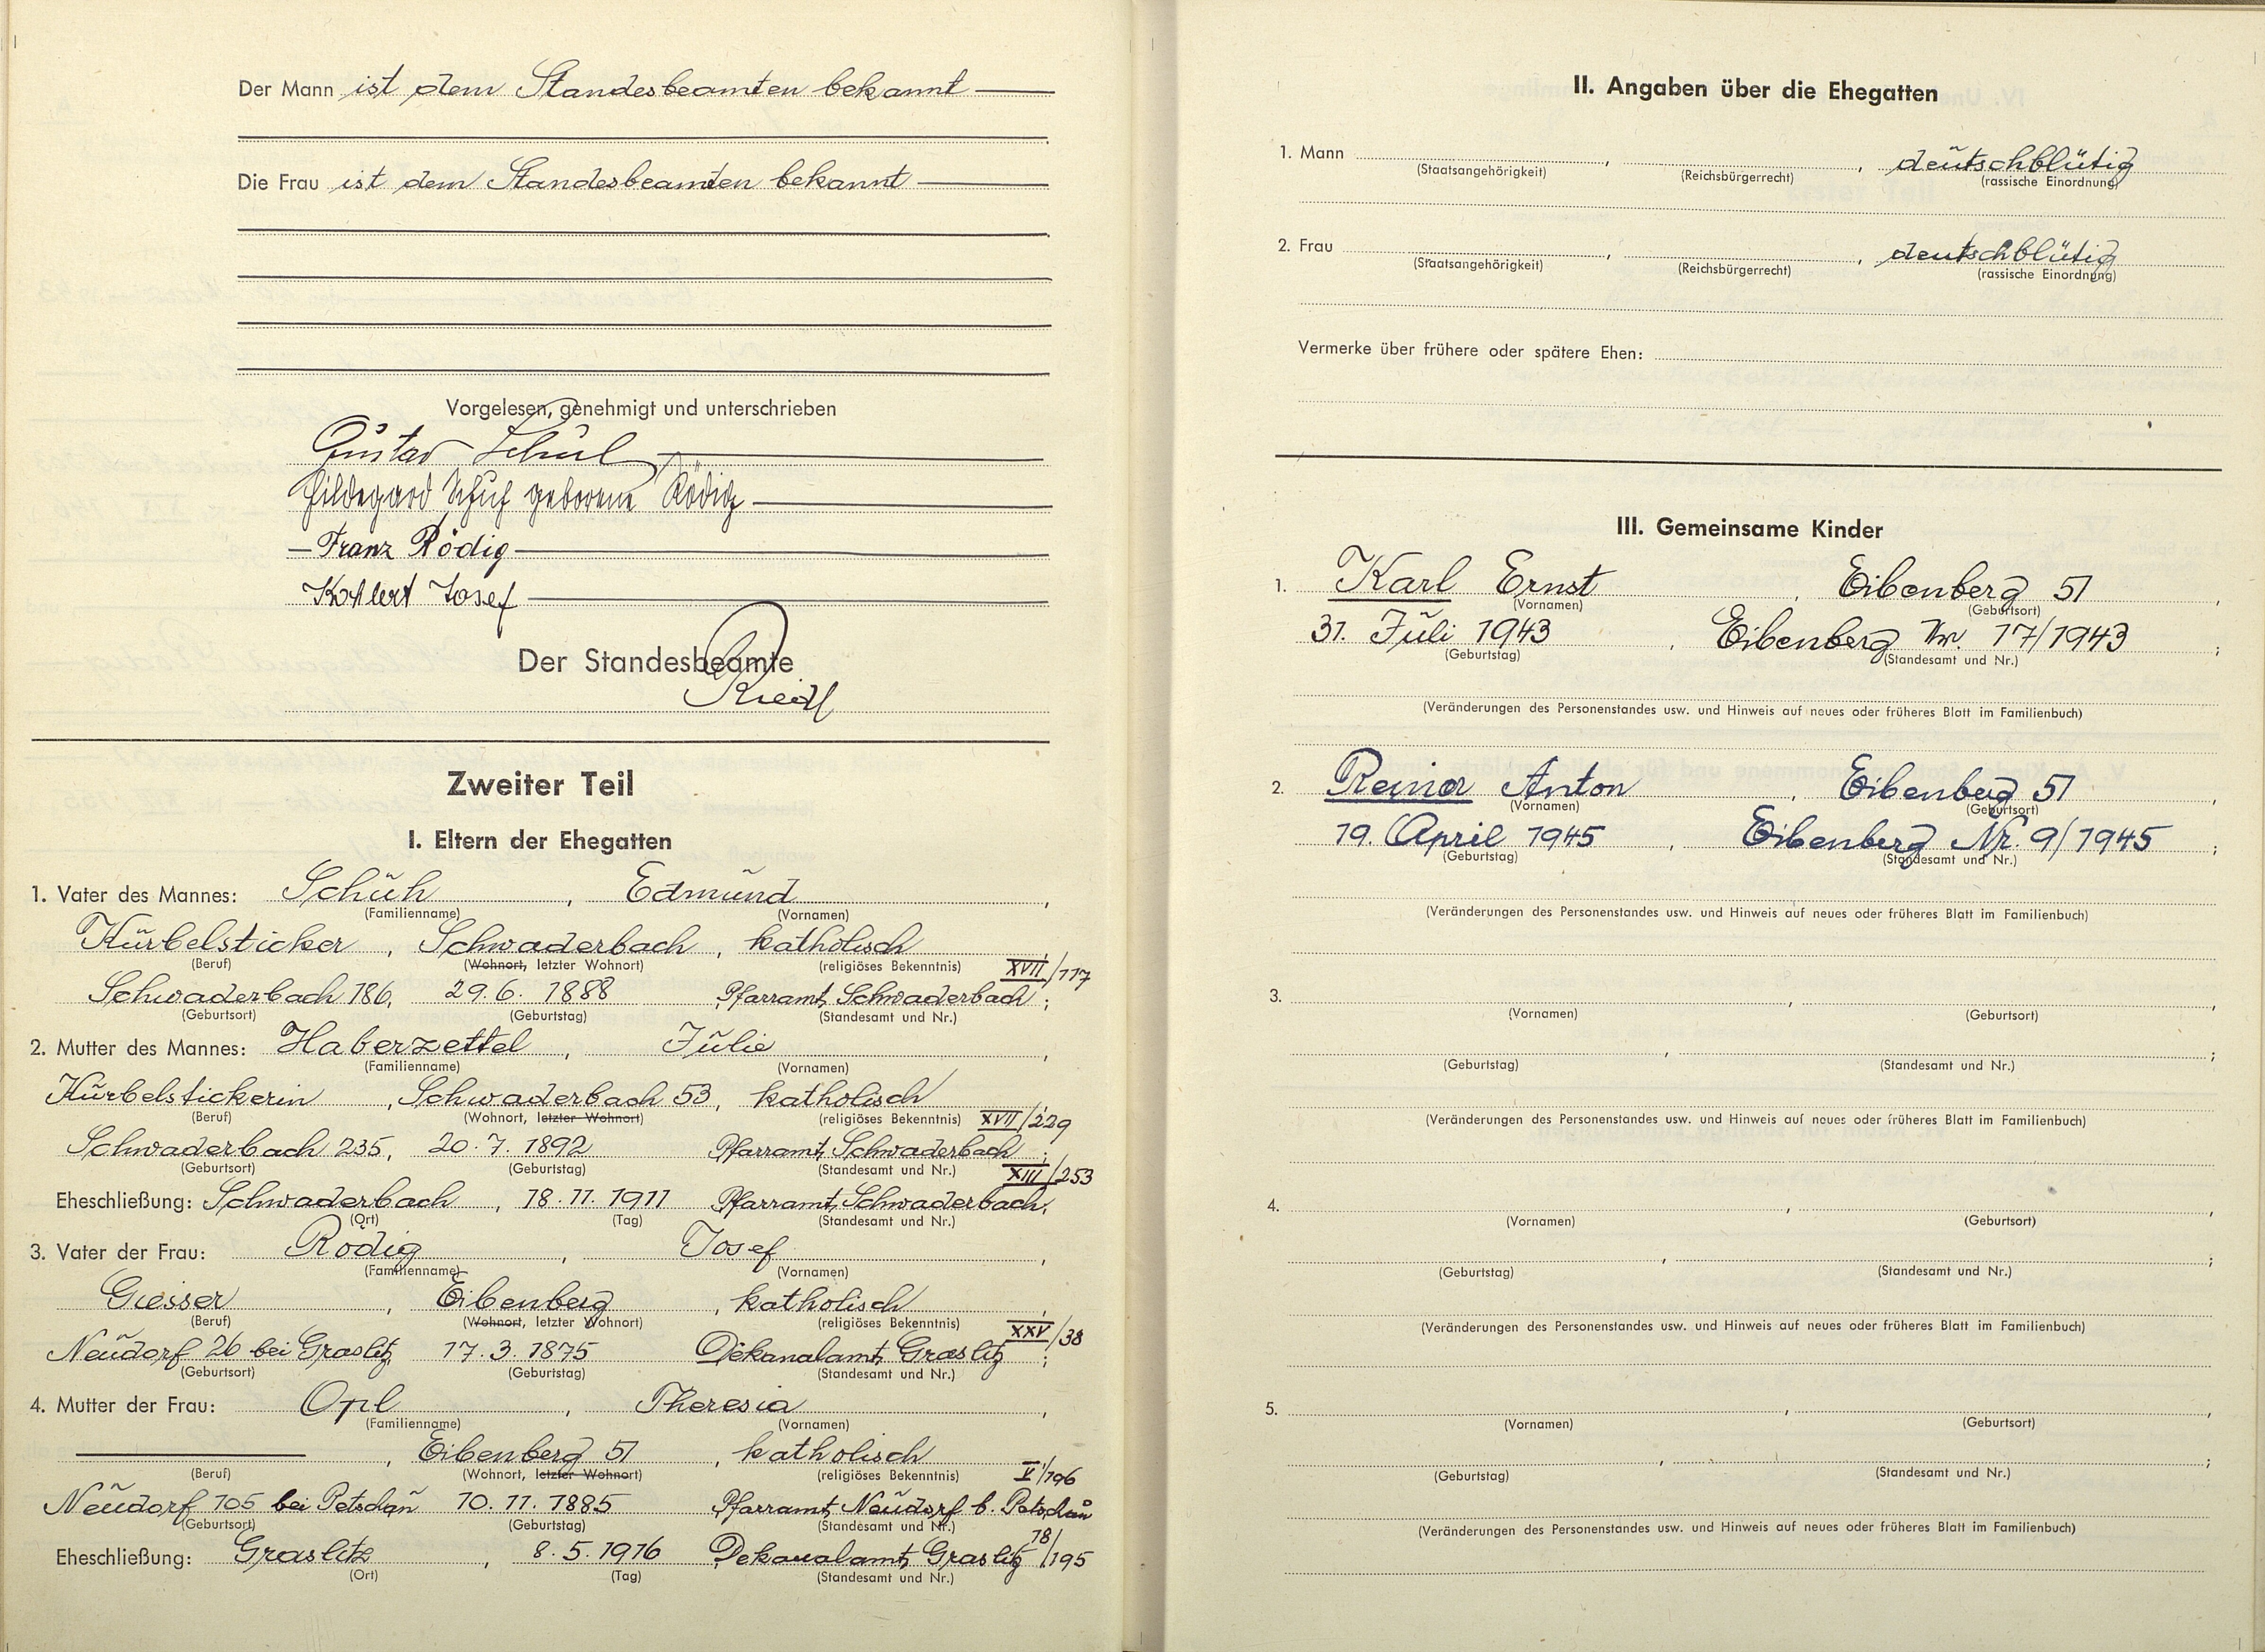 Der Mann ist dem Standesbeamten bekannt
Die Frau ist dem Standesbeamten bekannt
Vorgelesen, genehmigt und unterschrieben
Gustav Schuh
Hildegard Schuh geborene Rödig
Franz Rödig
Josef
Der Standesbeamte
Riedl
Zweiter Teil
I. Eltern der Ehegatten
1. Vater des Mannes: Schuh, Edmund,
(Familienname) (Vornamen)
Kurbelsticker, Schwaderbach, katholisch
(Beruf) (Wohnort, letzter Wohnort) (religiöses Bekenntnis) XVII/117
Schwaderbach 186, 29.6. 1888 Pfarramt Schwaderbach;
(Geburtsort) (Geburtstag) (Standesamt und Nr.)
2. Mutter des Mannes: Haberzettel, Julie,
(Familienname) (Vornamen)
Kurbelstickerin, Schwaderbach 53, katholisch
(Beruf) (Wohnort, letzter Wohnort) (religiöses Bekenntnis) XVII/229
Schwaderbach 235, 20.7. 1892 Pfarramt Schwaderbach;
(Geburtsort) (Geburtstag) (Standesamt und Nr.) XIII/253
Eheschließung: Schwaderbach, 18.11. 1911 Pfarramt Schwaderbach.
(Ort) (Tag) (Standesamt und Nr.)
3. Vater der Frau: Rödig, Josef,
(Familienname) (Vornamen)
Giesser, Eibenberg, katholisch,
(Beruf) (Wohnort, letzter Wohnort) (religiöses Bekenntnis) XXV/38
Neudorf 26 bei Graslitz, 17.3.1875 Dekanalamt Graslitz;
(Geburtsort) (Geburtstag) (Standesamt und Nr.)
4. Mutter der Frau: Opl, Theresia,
(Familienname) (Vornamen)
, Eibenberg 51, katholisch
(Beruf) (Wohnort, letzter Wohnort) (religiöses Bekenntnis) V/196
Neudorf 105 bei Petschau 10.11.1885 Pfarramt Neudorf b. Petschau
(Geburtsort) (Geburtstag) (Standesamt und Nr.)
Eheschließung: Graslitz, 8.5.1916 Dekanalamt Graslitz 18/195
(Ort) (Tag) (Standesamt und Nr.)
II. Angaben über die Ehegatten
1. Mann , , deutschblütig
(Staatsangehörigkeit) (Reichsbürgerrecht) (rassische Einordnung)
2. Frau , , deutschblütig
(Staatsangehörigkeit) (Reichsbürgerrecht) (rassische Einordnung)
Vermerke über frühere oder spätere Ehen:
III. Gemeinsame Kinder
1. Karl Ernst, Eibenberg 51,
(Vornamen) (Geburtsort)
31. Juli 1943, Eibenberg Nr. 17/1943;
(Geburtstag) (Standesamt und Nr.)
(Veränderungen des Personenstandes usw. und Hinweis auf neues oder früheres Blatt im Familienbuch)
2. Reinar Anton, Eibenberg 51,
(Vornamen) (Geburtsort)
19. April 1945, Eibenberg Nr. 9/1945;
(Geburtstag) (Standesamt und Nr.)
(Veränderungen des Personenstandes usw. und Hinweis auf neues oder früheres Blatt im Familienbuch)
3. , ,
(Vornamen) (Geburtsort)
, ;
(Geburtstag) (Standesamt und Nr.)
(Veränderungen des Personenstandes usw. und Hinweis auf neues oder früheres Blatt im Familienbuch)
4. , ,
(Vornamen) (Geburtsort)
, ;
(Geburtstag) (Standesamt und Nr.)
(Veränderungen des Personenstandes usw. und Hinweis auf neues oder früheres Blatt im Familienbuch)
5. , ,
(Vornamen) (Geburtsort)
, ;
(Geburtstag) (Standesamt und Nr.)
(Veränderungen des Personenstandes usw. und Hinweis auf neues oder früheres Blatt im Familienbuch)